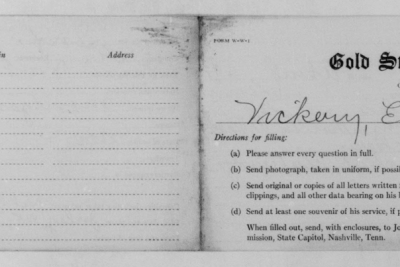 in Address
FORM W-W-1
Gold St
Vickery, E
Directions for filling:
(a) Please answer every question in full.
(b) Send photograph, taken in uniform, if possi
(c) Send original or copies of all letters written
clippings, and all other data bearing on his
(d) Send at least one souvenir of his service, if p
When filled out, send, with enclosures, to Jo
mission, State Capitol, Nashville, Tenn.